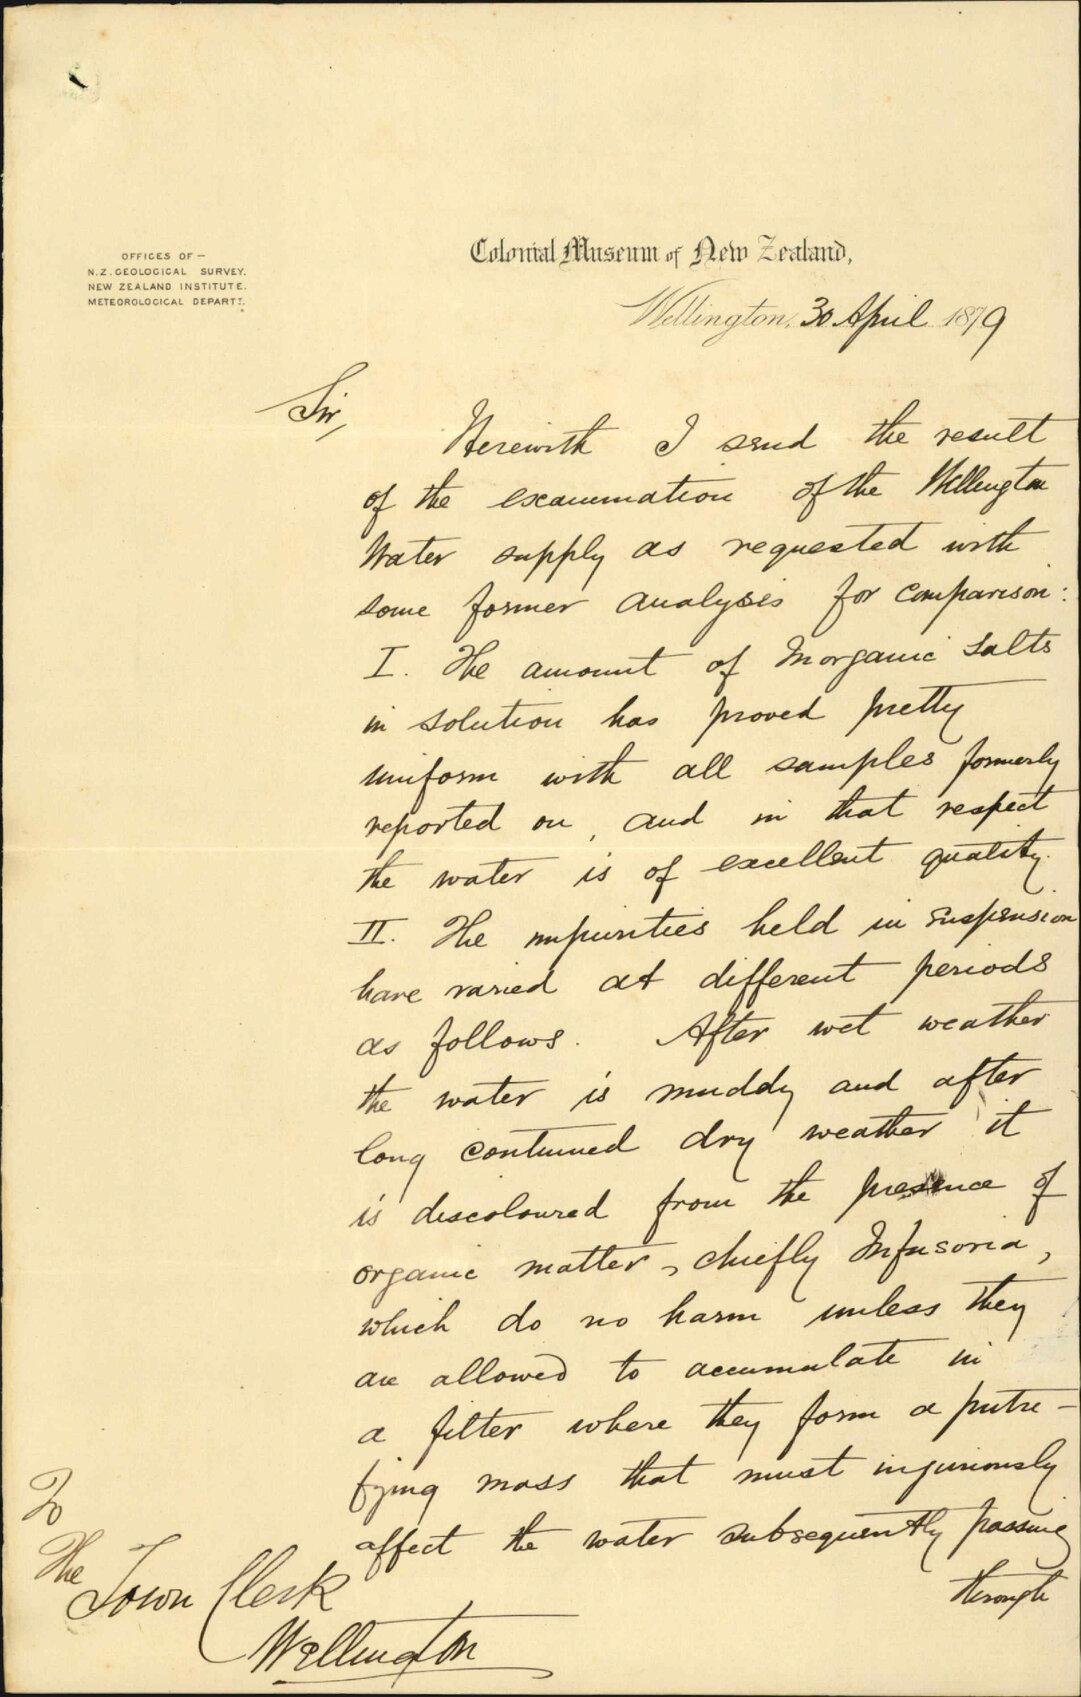 OFFICES OF —
N.Z. GEOLOGICAL SURVEY.
NEW ZEALAND INSTITUTE.
METEOROLOGICAL DEPART.T.
Colonial Museum of New Zealand,
Wellington, 30 April 1879
Sir,
Herewith I send the result
of the examination of the Wellington
Water supply as requested with
some former analysis for comparison:
I. The amount of Inorganic Salts
in solution has proved pretty
uniform with all samples formerly
reported on, and in that respect
the water is of excellent quality.
II. The impurities held in suspension
have varied at different periods
as follows. After wet weather
the water is muddy and after
long continued dry weather it
is discoloured from the presence of
organic matter, chiefly Infusoria,
which do no harm unless they
are allowed to accumulate in
a filter where they form a putre-
fying mass that must injuriously
affect the water subsequently passing
through
To
The Town Clerk
Wellington